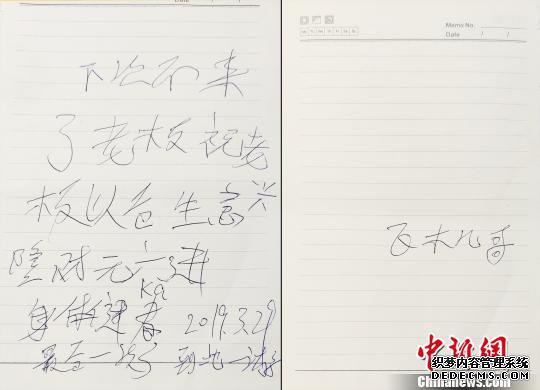 Date / /
下次不来
了老板祝老
板以后生意兴
隆财元广进
Ka
身体健 2019.3.29
最后一次了 到此一游
Memo No.
Date / /
瓦木几哥
中新网
织梦内容管理系统
DEDECMS.COM